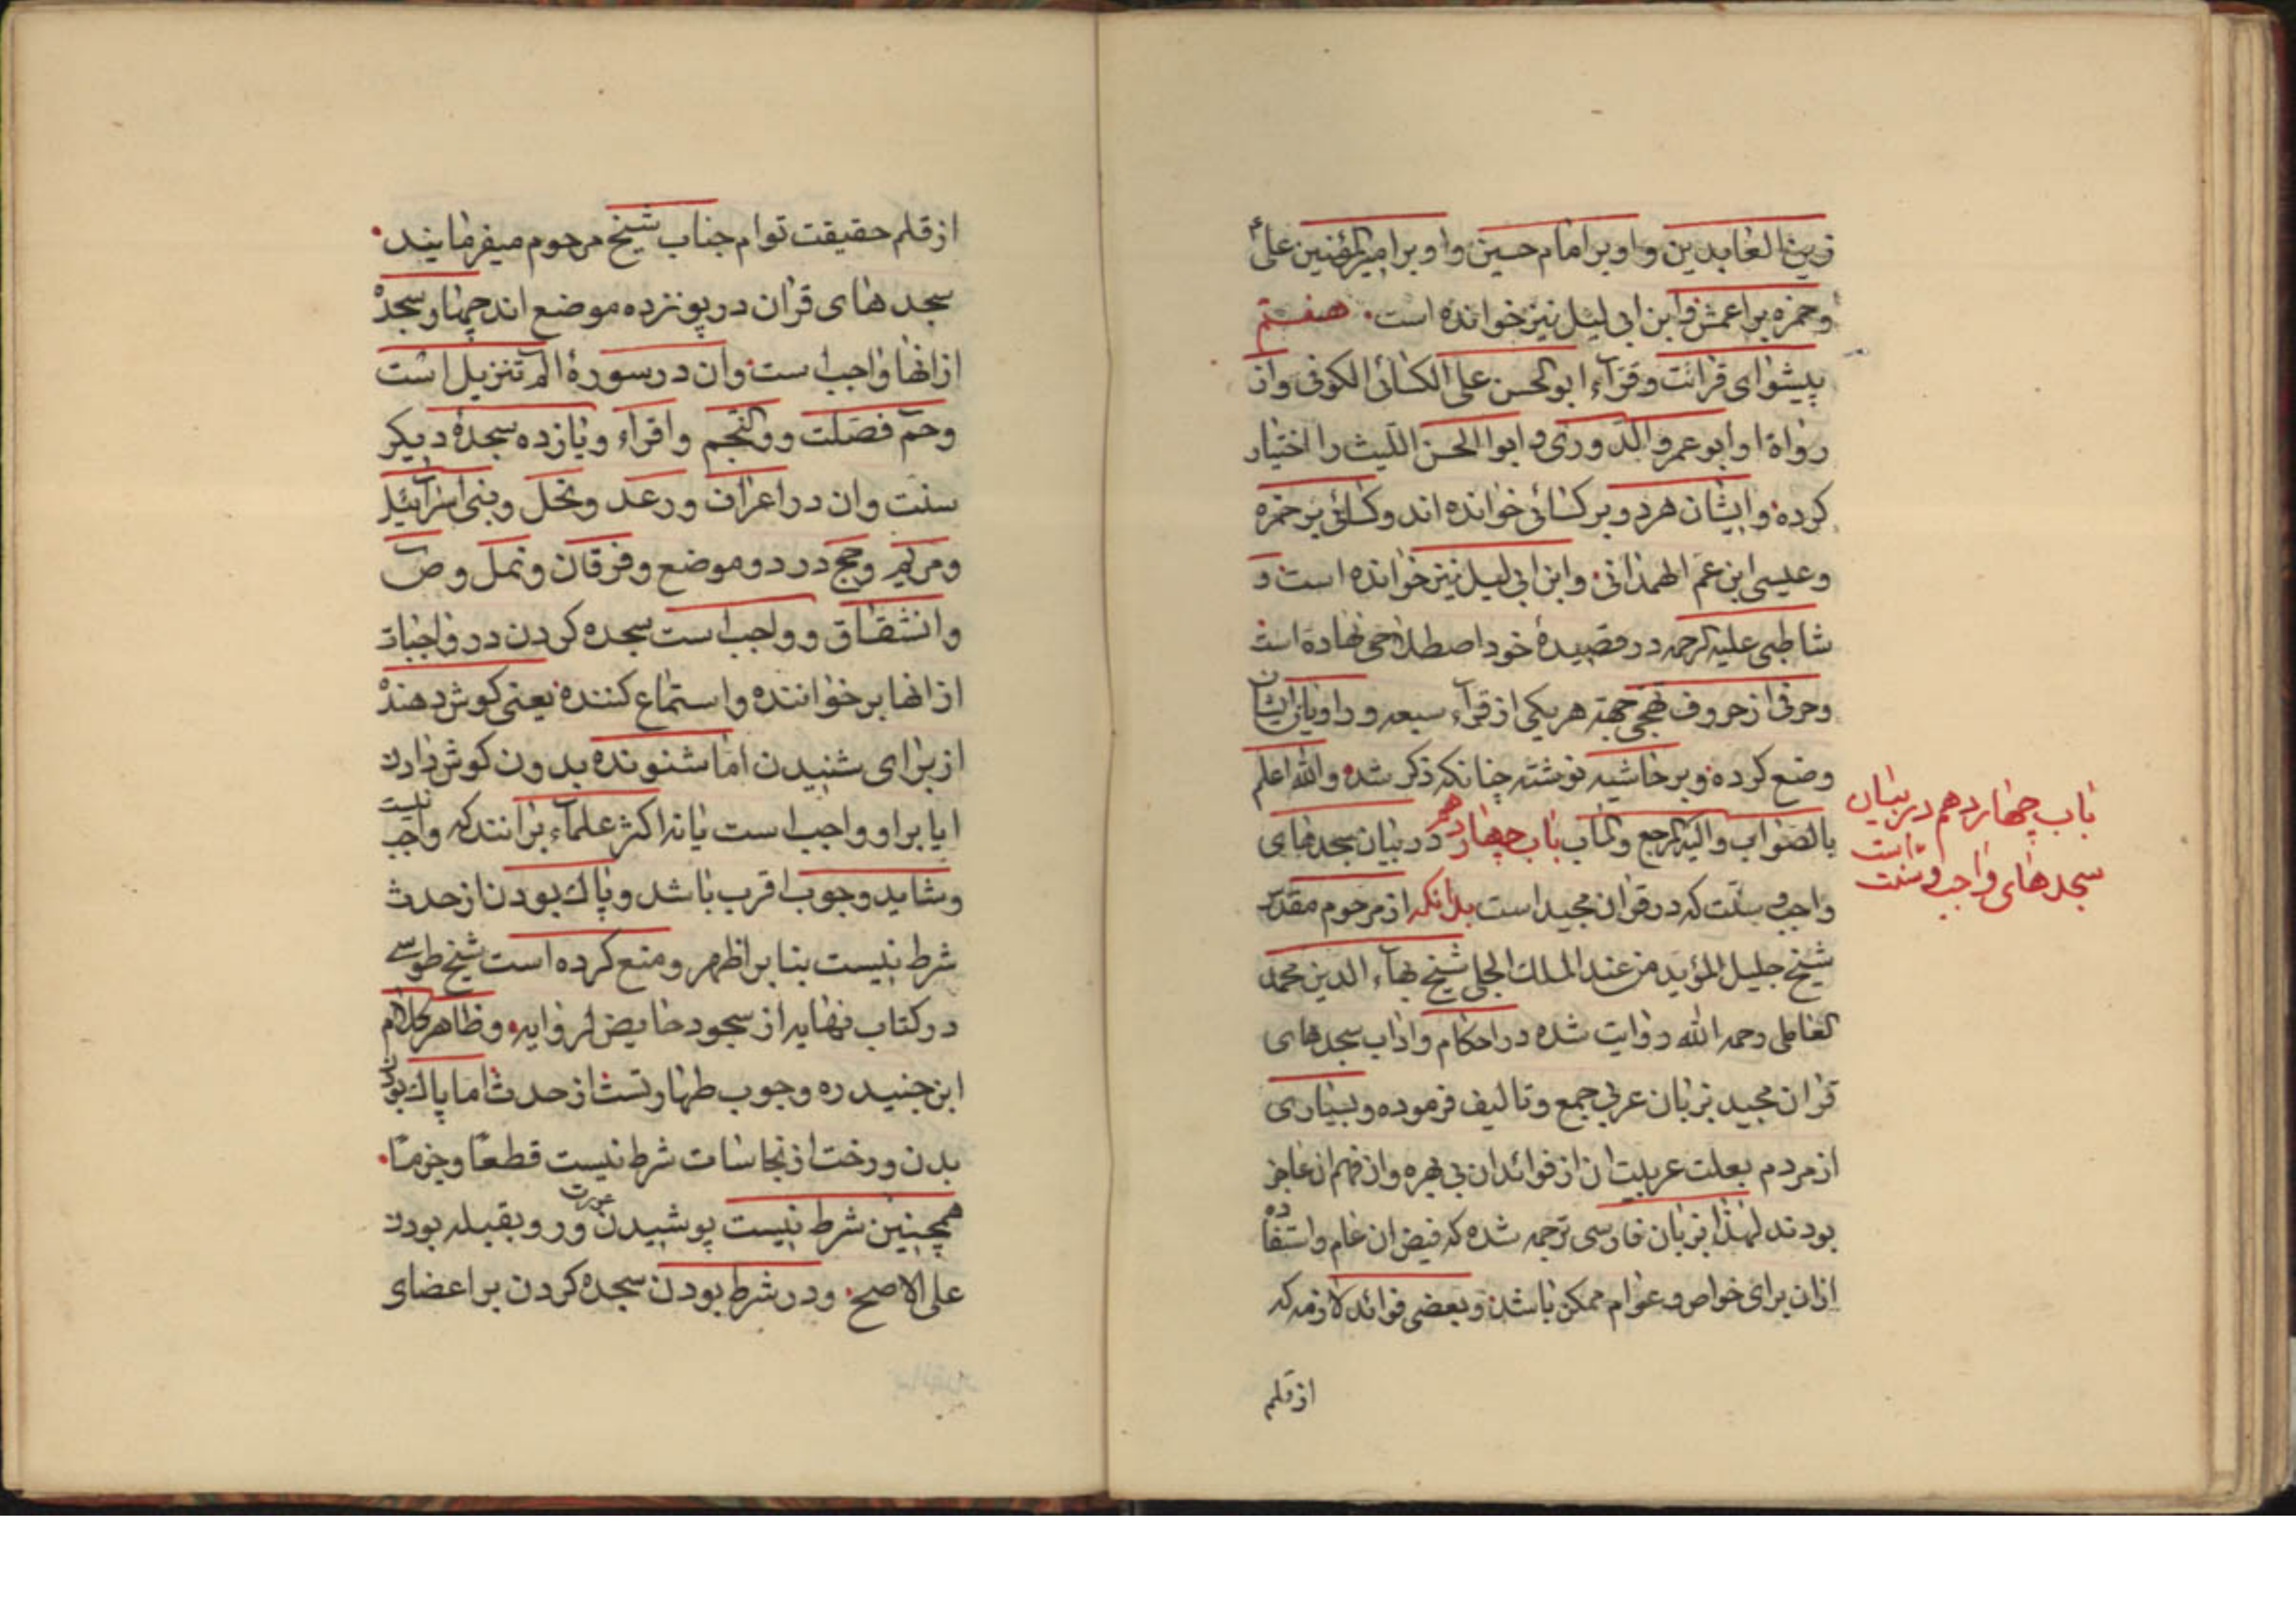 زین العابدین و او بر امام حسین و او بر امیرالمؤمنین علی ؑ
و حمزه بر اعمش و ابن ابی لیل نیز خوانده است هفتم
پیشوای قرائت و قرآء ابوالحسن علی الکسائی الکوفی و از
رواة او ابو عمرو الدوری و ابوا الحسن اللیث را اختیار
کرده و ایشان هر دو بر کسائی خوانده اند و کسائی بر حمزه
و عیسی ابن عم الهمدانی و ابن ابی لیل نیز خوانده است و
شاطبی علیه الرحمه در قصیدۀ خود اصطلاحی نهاده است
و حرفی از حروف تهجی جهتة هر یکی از قرآء سبعه و راویان ایشان
وضع کرده و بر حاشیه نوشته چنانکه ذکر شد والله اعلم
بالصواب و الیه المرجع و المآب باب چهاردهم در بیان سجدهای
واجب و سنّت که در قرآن مجید است بدانکه از مرحوم مقدّس
شیخ جلیل المؤید من عند الملک الجلی شیخ بهآء الدین محمد
العاملی رحمه الله روایت شده در احکام و اداب سجدهای
قران مجید بزبان عربی جمع و تالیف فرموده و بسیاری
از مردم بعلت عربیت ان از فوائد ان بی بهره و از فهم ان عاجز
بودند لهذا بزبان فارسی ترجمه شده که فیض ان عام و استفاده
ازان برای خواص و عوام ممکن باشد و بعضی فوائد لازمه که
از قلم
باب چهاردهم در بیان
سجدهای واجب و سنت است
از قلم حقیقت توام جناب شیخ مرحوم میفرمایند
سجدهای قران در پونزده موضع اند چهار سجدۀ
از انها واجب است وان در سورۀ الم تنزیل است
و حم فصّلت و والنّجم و اقراء و یازده سجدۀ دیگر
سنت وان در اعراف و رعد و نحل و بنی اسرآئیل
و مریم و حج در دو موضع و فرقان و نمل و ص
و انشقاق و واجب است سجده کردن در واجبات
از انها بر خواننده و استماع کننده یعنی کوش دهندۀ
از برای شنیدن اما شنونده بدون کوش دادن
ایا بر او واجب است یا نه اکثر علمآء برانند که واجب نیست
و شاید وجوب اقرب باشد و پاک بودن از حدث
شرط نیست بنا بر اظهر و منع کرده است شیخ طوسی
در کتاب نهایه از سجود حایض لروایه و ظاهر کلام
ابن جنید ره وجوب طهارتست از حدث اما پاک بودن
بدن و رخت از نجاسات شرط نیست قطعًا و جزمًا
همچنین شرط نیست پوشیدن عورت و رو بقبله بودن
علی الاصح و در شرط بودن سجده کردن بر اعضای